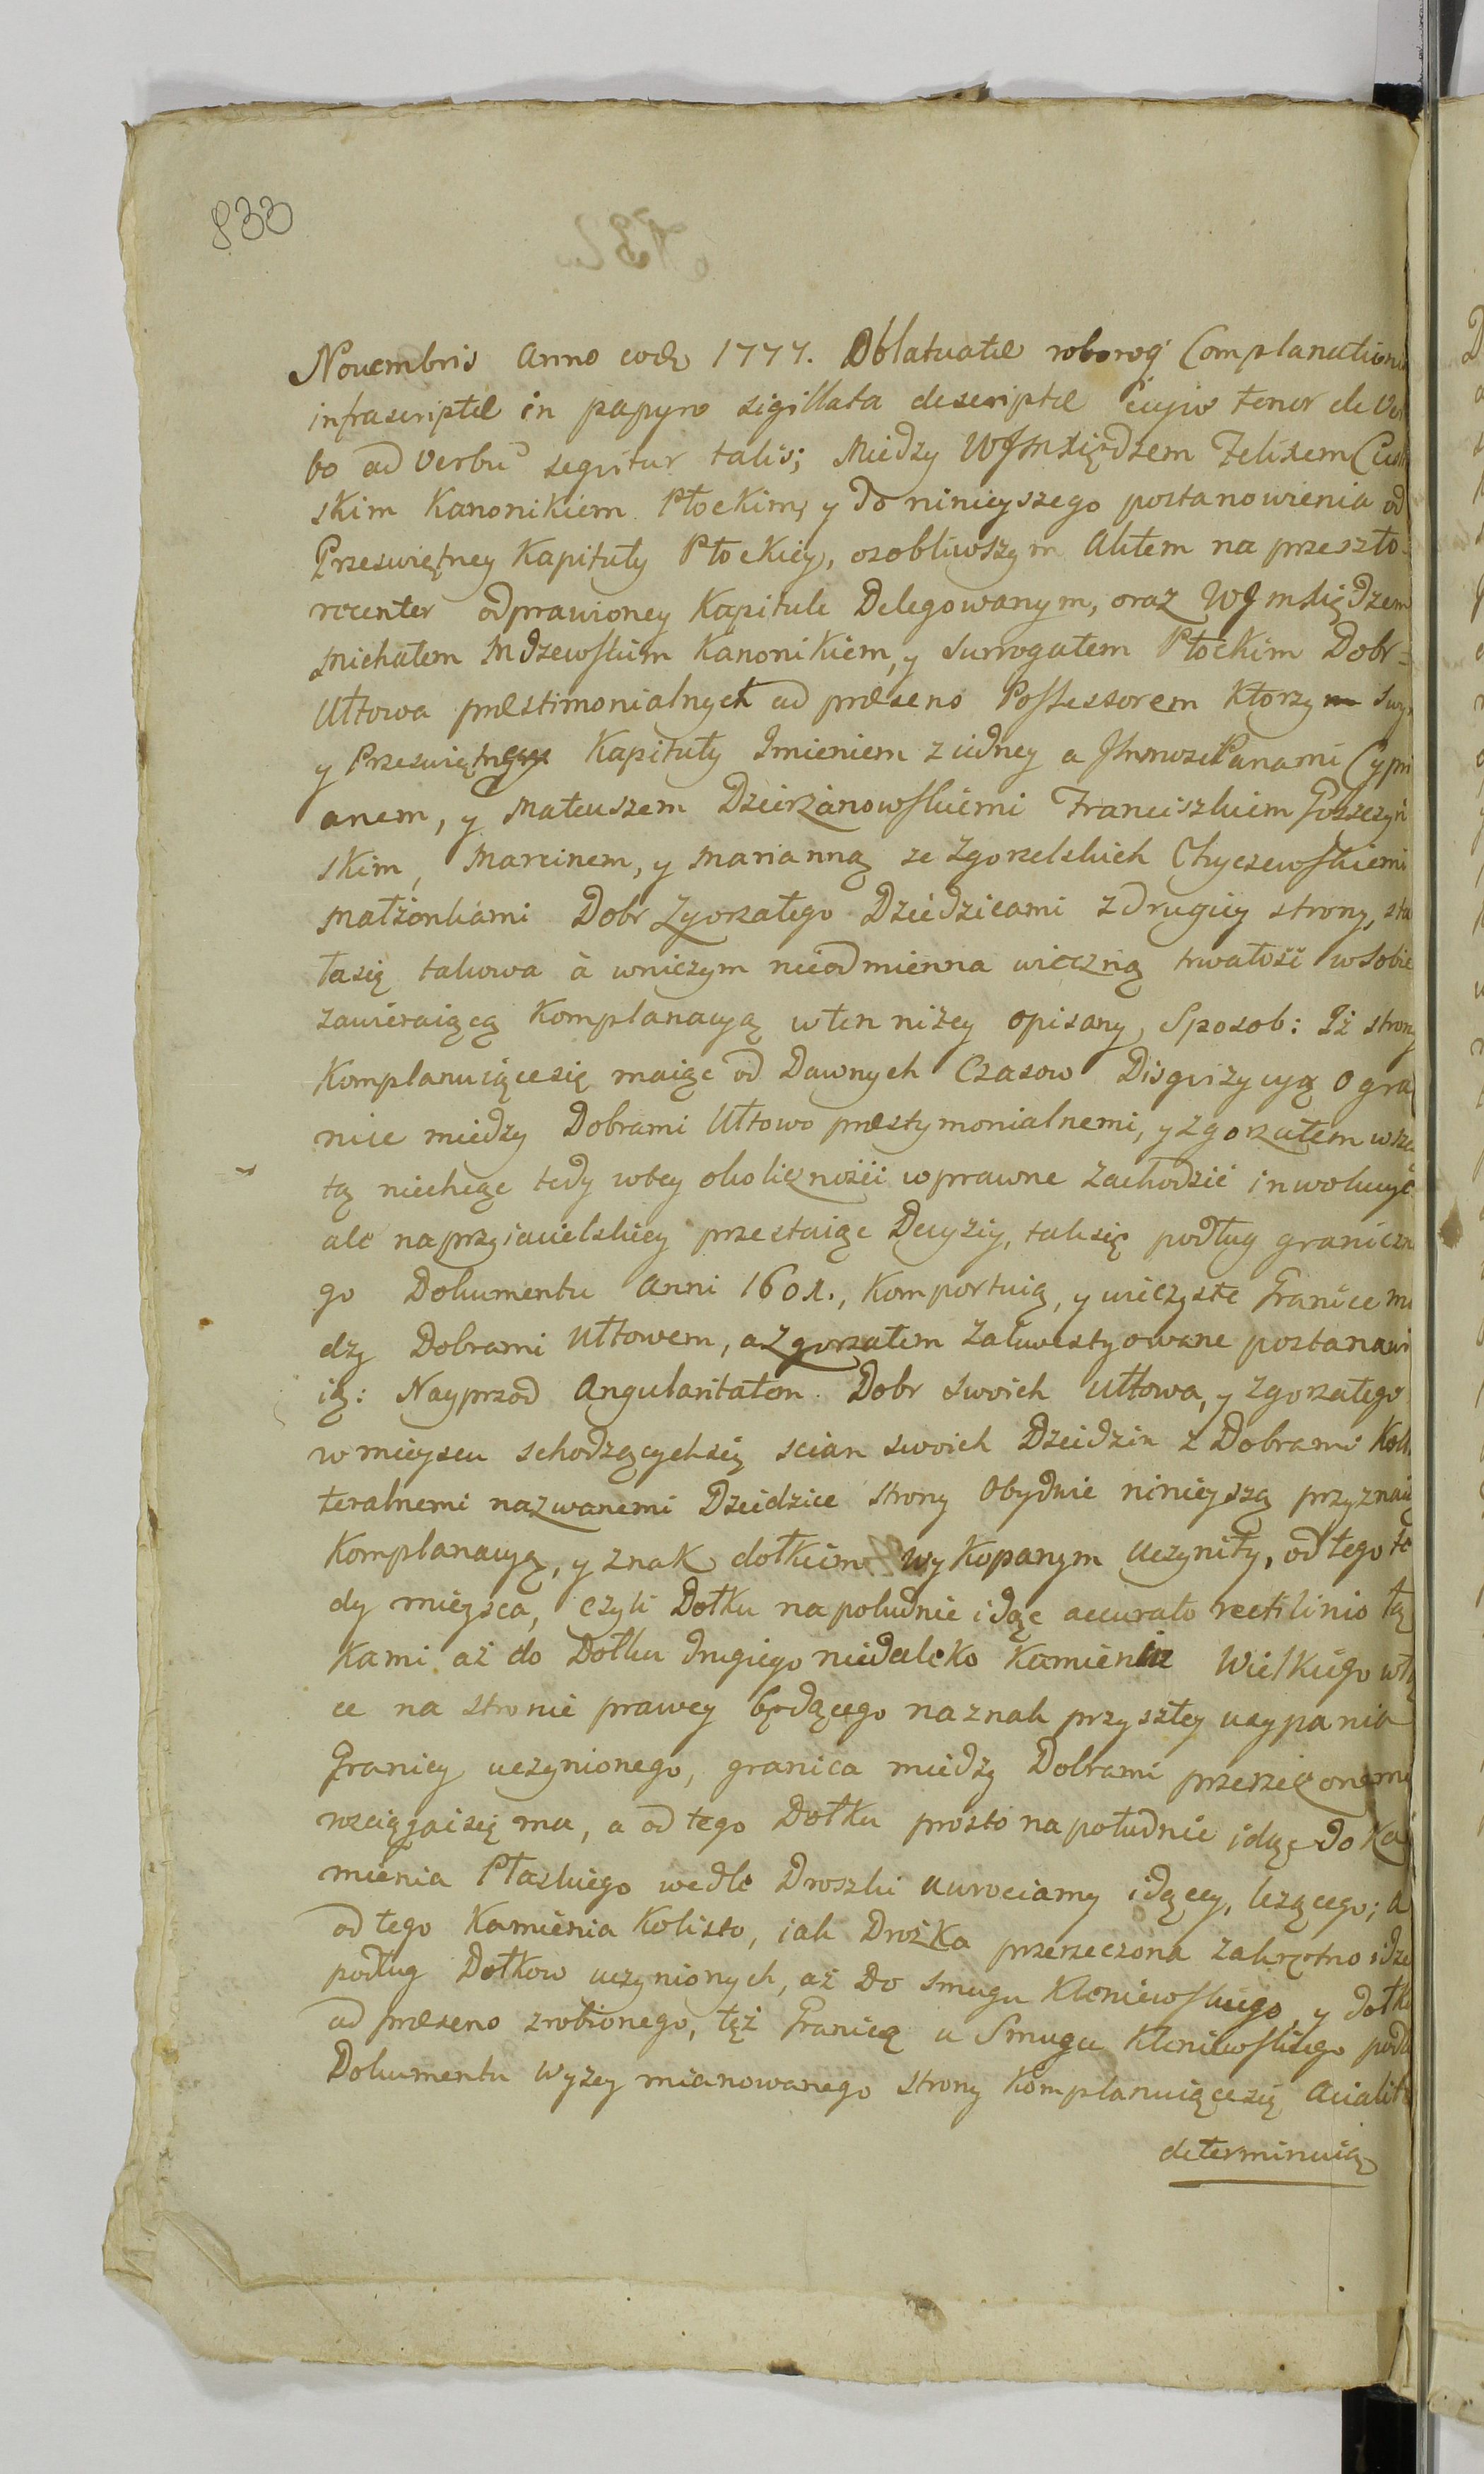 833
Novembris Anno eod 1777. Oblatuatæ roborog Complanationis
infrascriptæ in papyro sigillata descriptæ cujus tenor de Ver
bo ad Verbū seqvitur talis; Miedzy WJmXiędzem Felixem
skim Kanonikiem Płockim, y do ninieyszego postanowienia od
Przeswiętney Kapituły Płockiey, osobliwszym Aktem na przeszło
recenter odprawioney Kapitule Delegowanym, oraz WJmXiędzem
Michałem Mdzewskim Kanonikiem, y Surrogatem Płockim Dobr=
Ułtowa præstimonialnych ad præsens Possessorem ktorzy swym
y Przeswiętney Kapituły Imieniem z iedney a Panami Cypri
anem, y Mateuszem Dzierzanowskiemi Franciszkiem
skim, Marcinem, y Marianną ze Zgorzelskich Chyczewskiemi
Małżonkami Dobr Zgorzałego Dziedzicami z drugiey strony, sta
ła się takowa à wniczym nieodmienna wieczną trwałość w sobie
zawieraiącą Komplanacyą w ten niżey opisany Sposob: Iż strony
Komplanuiącesię maiąc od Dawnych Czasow Disqvizycyą o gra
nice miedzy Dobrami Ułtowo præstymonialnemi, y Zgorzałem wszczę
tą niechcąc tedy w tey okolicznośći w prawne zachodzić inwolucye
ale na przyiacielskiey przestaiąc Decyzyi, tak się podług graniczne
go Dokumentu Anni 1601., komportuią, y wieczyste Granice mie
dzy Dobrami Ułtowem, a Zgorzałem zakwestyowane postanawi
ią: Nayprzod Angularitatem Dobr swoich Ułtowa, y Zgorzałego
w mieyscu schodzącychsię scian swoich Dziedzin z Dobrami Kolla
teralnemi nazwanemi Dziedzice strony Obydwie ninieyszą przyznaią
Komplanacyą, y znak dołkiem wykopanym uczyniły, od tego te
dy mieysca, czyli Dołku na południe idąc accurato rectilinio łą
kami aż do Dołku drugiego niedaleko Kamienia Wielkiego w łą
ce na stronie prawey będącego na znak przyszłey usypania
Granicy uczynionego, granica miedzy Dobrami przerzeczonemi
rozciągaćsię ma, a od tego Dołku prosto na południe idąc do Ka
mienia Płaskiego wedle Droszki idącey, leżącego; a
od tego Kamienia kolisto, iak Drożka przerzeczona zakrętno idzie
podług Dołkow uczynionych, aż do smugu Kleniewskiego, y dołku
ad præsens zrobionego, też Granicą u Smugu Kleniewskiego podług
Dokumentu wyżey mianowanego strony komplanuiącesię
determinuią